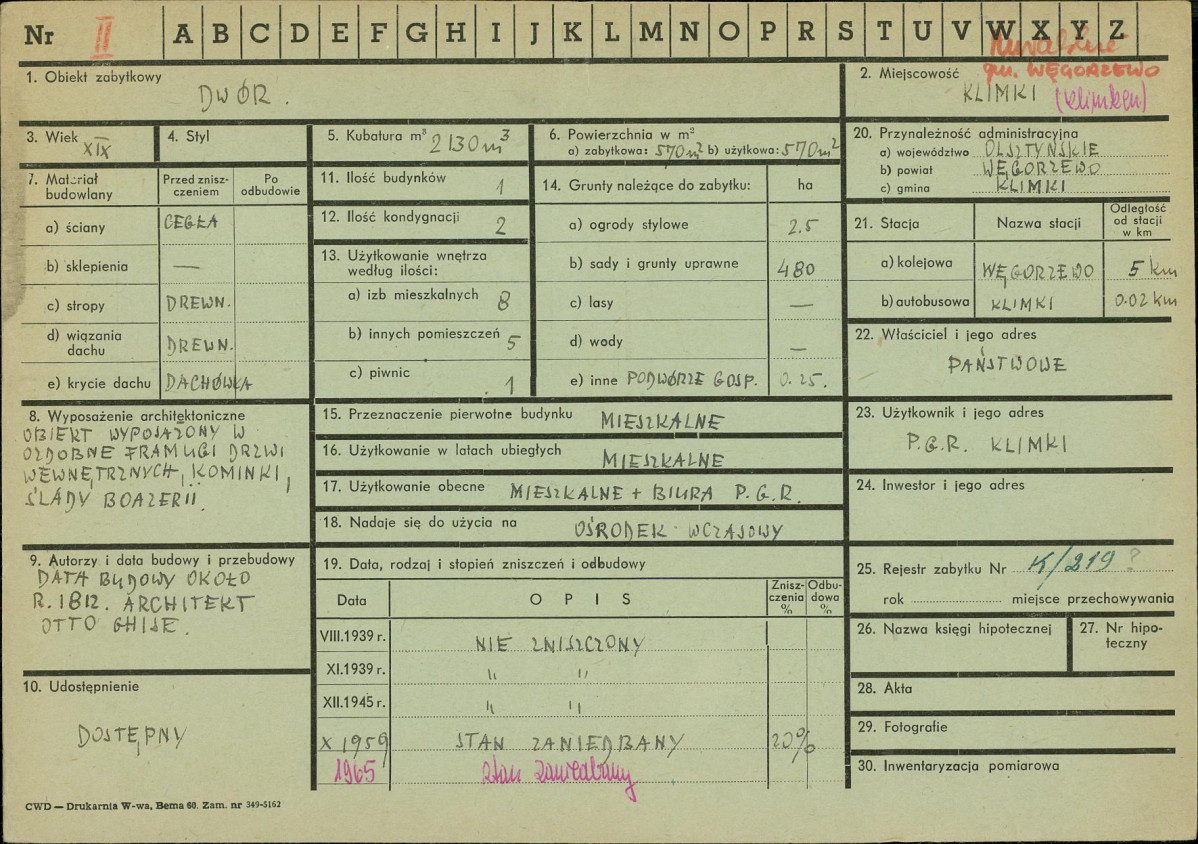 Nr II A B C D E F G H I J K L M N O P R S T U V W X Y Z
gm. WĘGORZEWO
1. Obiekt zabytkowy
DWÓR.
2. Miejscowość
KLIMKI (Klimken)
3. Wiek XIX
4. Styl
5. Kubatura m³ 2130 m³
6. Powierzchnia w m²
a) zabytkowa: 570 m² b) użytkowa: 570 m²
20. Przynależność administracyjna
a) województwo OLSZTYŃSKIE
b) powiat WĘGORZEWO
c) gmina KLIMKI
7. Materiał budowlany
Przed zniszczeniem
Po odbudowie
a) ściany CEGŁA
b) sklepienia —
c) stropy DREWN.
d) wiązania dachu DREWN.
e) krycie dachu DACHÓWKA
11. Ilość budynków 1
12. Ilość kondygnacji 2
13. Użytkowanie wnętrza
według ilości:
a) izb mieszkalnych 8
b) innych pomieszczeń 5
c) piwnic 1
14. Grunty należące do zabytku: ha
a) ogrody stylowe 2.5
b) sady i grunty uprawne 480
c) lasy —
d) wody —
e) inne PODWÓRZE GOSP. 0.25.
21. Stacja
Nazwa stacji
Odległość
od stacji
w km
a) kolejowa WĘGORZEWO 5 km
b) autobusowa KLIMKI 0.02 km
22. Właściciel i jego adres
PAŃSTWOWE
8. Wyposażenie architektoniczne
OBIEKT WYPOSAŻONY W
OZDOBNE FRAMUGI DRZWI
WEWNĘTRZNYCH, KOMINKI,
ŚLADY BOAZERII.
15. Przeznaczenie pierwotne budynku MIESZKALNE
16. Użytkowanie w latach ubiegłych MIESZKALNE
17. Użytkowanie obecne MIESZKALNE + BIURA P.G.R.
18. Nadaje się do użycia na OŚRODEK WCZASOWY
23. Użytkownik i jego adres
P.G.R. KLIMKI
24. Inwestor i jego adres
9. Autorzy i data budowy i przebudowy
DATA BUDOWY OKOŁO
R. 1812. ARCHITEKT
OTTO GHISE.
19. Data, rodzaj i stopień zniszczeń i odbudowy
Data
OPIS
Zniszczenia %
Odbudowa %
VIII.1939 r. NIE ZNISZCZONY
XI.1939 r. " "
XII.1945 r. " "
X 1959 STAN ZANIEDBANY 20%
1965 stan zaniedbany
25. Rejestr zabytku Nr K/219 ?
rok miejsce przechowywania
26. Nazwa księgi hipotecznej
27. Nr hipoteczny
28. Akta
29. Fotografie
30. Inwentaryzacja pomiarowa
10. Udostępnienie
DOSTĘPNY
CWD — Drukarnia W-wa, Bema 60. Zam. nr 349-5162